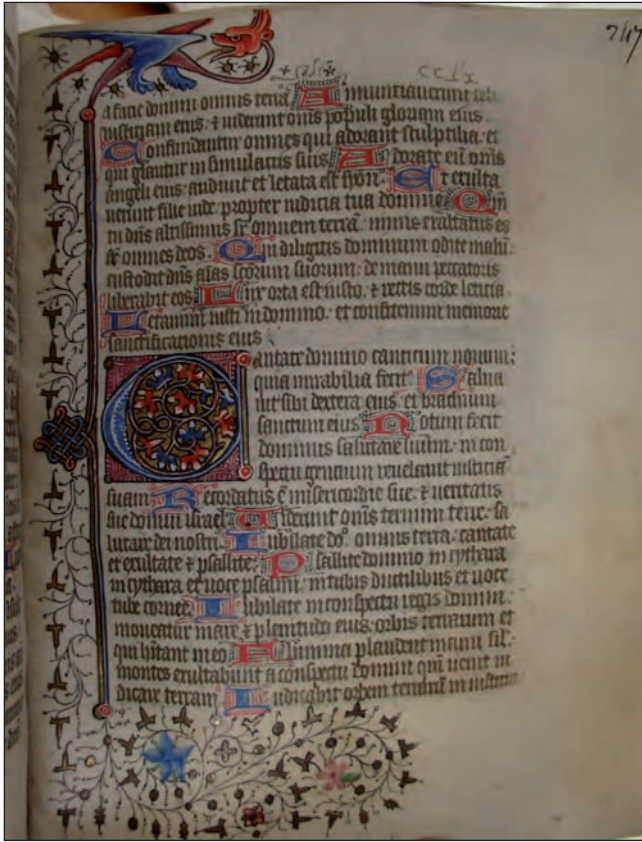 247
cclx
a facie domini omnis terra Annuntiaverunt celi
iusticiam eius: & viderunt oms populi gloriam eius.
Confundantur omnes qui adorant sculptilia: et
qui gliantur in simulacris suis Adorate eu oms
angeli eius: audivit et letata est syon. Et exulta
verunt filie iude: propter iudicia tua domine Qm
tu dns altissimus sr omnem terra: nimis exaltatus es
sr omnes deos. Qui diligitis dominum odite malu:
custodit dns aias scorum suorum: de manu peccatoris
liberabit eos Lux orta est iusto: & rectis corde leticia.
Letamini iusti in domino: et confitemini memorie
sanctificationis eius
Cantate domino canticum novum:
quia mirabilia fecit. Salva
vit sibi dextera eius: et brachium
sanctum eius Notum fecit
dominus salutare suum: in con
spectu gentium revelavit iusticia
suam Recordatus e misericordie sue: & veritatis
sue domui israel Viderunt oms termini terre: sa
lutare dei nostri Iubilate do omnis terra: cantate
et exultate & psallite. Psallite domino in cythara
in cythara et voce psalmi: in tubis ductilibus et voce
tube cornee. Iubilate in conspectu regis domini:
moveatur mare & plenitudo eius: orbis terrarum et
qui hitant in eo Flumina plaudent manu sil
montes exultabunt a conspectu domini: qm venit iu
dicare terram Iudicabit orbem terrarum in iusticia